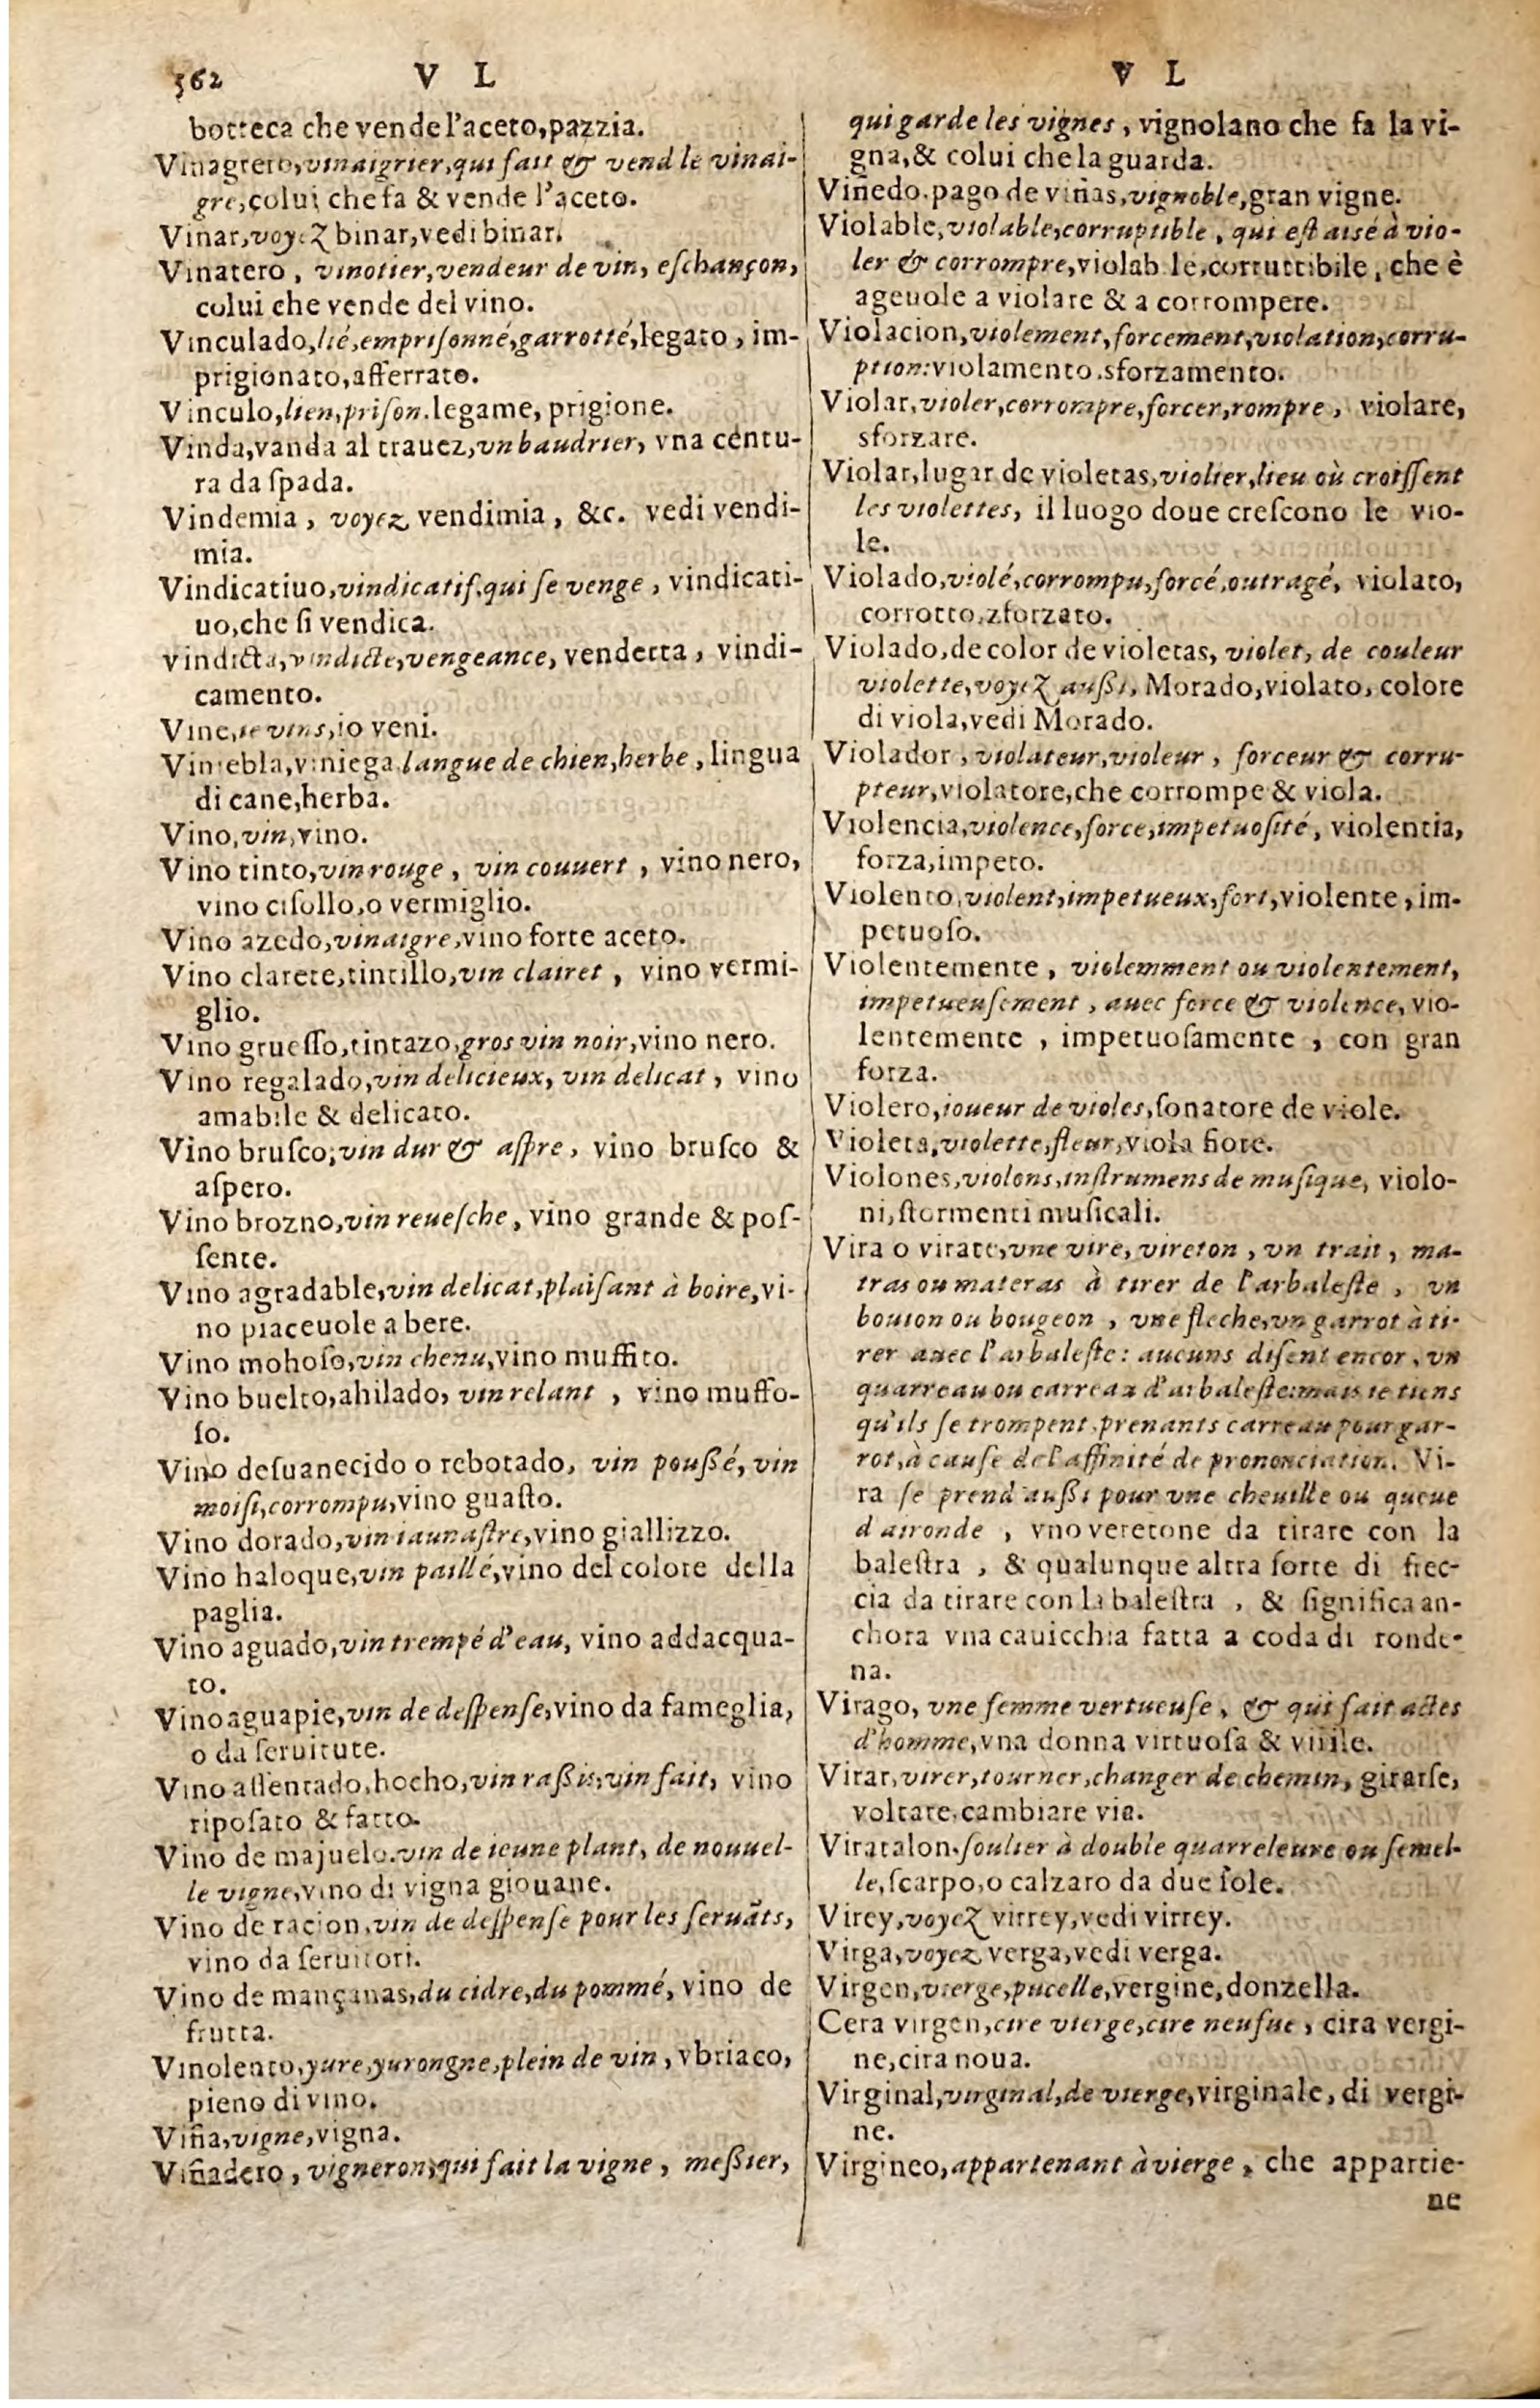 562 V L
botteca che vende l'aceto,pazzia.
Vinagrero,vinaigrier,qui fait & vend le vinai-
gre,colui che fa & vende l'aceto.
Vinar,voyez binar,vedi binar.
Vinatero, vinotier,vendeur de vin, eſchançon,
colui che vende del vino.
Vinculado,lié,empriſonné,garrotté,legato, im-
prigionato,afferrato.
Vinculo,lien,priſon.legame, prigione.
Vinda,vanda al trauez,vn baudrier, vna centu-
ra da ſpada.
Vindemia, voyez vendimia, &c. vedi vendi-
mia.
Vindicatiuo,vindicatif,qui ſe venge, vindicati-
uo,che ſi vendica.
vindicta,vindicte,vengeance, vendetta, vindi-
camento.
Vine,ie vins,io veni.
Viniebla,viniega,langue de chien,herbe, lingua
di cane,herba.
Vino,vin,vino.
Vino tinto,vin rouge, vin couuert, vino nero,
vino ciſollo,o vermiglio.
Vino azedo,vinaigre,vino forte aceto.
Vino clarete,tintillo,vin clairet, vino vermi-
glio.
Vino grueſſo,tintazo,gros vin noir,vino nero.
Vino regalado,vin delicieux, vin delicat, vino
amabile & delicato.
Vino bruſco,vin dur & aſpre, vino bruſco &
aſpero.
Vino brozno,vin reueſche, vino grande & poſ-
ſente.
Vino agradable,vin delicat,plaiſant à boire,vi-
no piaceuole a bere.
Vino mohoſo,vin chenu,vino muffito.
Vino buelto,ahilado, vin relant, vino muffo-
ſo.
Vino deſuanecido o rebotado, vin pouſſé, vin
moiſi,corrompu,vino guaſto.
Vino dorado,vin iaunaſtre,vino giallizzo.
Vino haloque,vin paillé,vino del colore della
paglia.
Vino aguado,vin trempé d'eau, vino addacqua-
to.
Vino aguapie,vin de deſpenſe,vino da fameglia,
o da ſeruitute.
Vino aſſentado,hocho,vin raſſis,vin fait, vino
ripoſato & fatto.
Vino de majuelo.vin de ieune plant, de nouuel-
le vigne,vino di vigna giouane.
Vino de racion,vin de deſpenſe pour les ſeruãts,
vino da ſeruitori.
Vino de mançanas,du cidre,du pommé, vino de
frutta.
Vinolento,yure,yurongne,plein de vin, vbriaco,
pieno di vino.
Viña,vigne,vigna.
Viñadero, vigneron,qui fait la vigne, meſſier,
V L
qui garde les vignes, vignolano che fa la vi-
gna,& colui che la guarda.
Viñedo.pago de viñas,vignoble,gran vigne.
Violable,violable,corruptible, qui eſt aisé à vio-
ler & corrompre,violab le,corruttibile, che è
ageuole a violare & a corrompere.
Violacion,violement,forcement,violation,corru-
ption:violamento.sforzamento.
Violar,violer,corrompre,forcer,rompre, violare,
sforzare.
Violar,lugar de violetas,violier,lieu où croiſſent
les violettes, il luogo doue creſcono le vio-
le.
Violado,violé,corrompu,forcé,outragé, violato,
corrotto,zforzato.
Violado,de color de violetas, violet, de couleur
violette,voyez auſſi, Morado,violato, colore
di viola,vedi Morado.
Violador, violateur,violeur, forceur & corru-
pteur,violatore,che corrompe & viola.
Violencia,violence,force,impetuoſité, violentia,
forza,impeto.
Violento,violent,impetueux,fort,violente, im-
petuoſo.
Violentemente, violemment ou violentement,
impetueuſement, auec force & violence, vio-
lentemente, impetuoſamente, con gran
forza.
Violero,ioueur de violes,ſonatore de viole.
Violeta,violette,fleur,viola fiore.
Violones,violons,inſtrumens de muſique, violo-
ni,ſtormenti muſicali.
Vira o virate,vne vire, vireton, vn trait, ma-
tras ou materas à tirer de l'arbaleſte, vn
bouton ou bougeon, vne fleche,vn garrot à ti-
rer auec l'arbaleſte: aucuns diſent encor, vn
quarreau ou carreau d'arbaleſte:mais ie tiens
qu'ils ſe trompent,prenants carreau pour gar-
rot,à cauſe de l'affinité de prononciation. Vi-
ra ſe prend auſſi pour vne cheuille ou queue
d'aironde, vno veretone da tirare con la
baleſtra, & qualunque altra ſorte di frec-
cia da tirare con la baleſtra, & ſignifica an-
chora vna cauicchia fatta a coda di ronde-
na.
Virago, vne femme vertueuſe, & qui fait actes
d'homme,vna donna virtuoſa & virile.
Virar,virer,tourner,changer de chemin, girarſe,
voltare,cambiare via.
Viratalon.ſoulier à double quarreleure ou ſemel-
le,ſcarpo,o calzaro da due ſole.
Virey,voyez virrey,vedi virrey.
Virga,voyez verga,vedi verga.
Virgen,vierge,pucelle,vergine,donzella.
Cera virgen,cire vierge,cire neufue, cira vergi-
ne,cira noua.
Virginal,virginal,de vierge,virginale, di vergi-
ne.
Virgineo,appartenant à vierge, che appartie-
ne